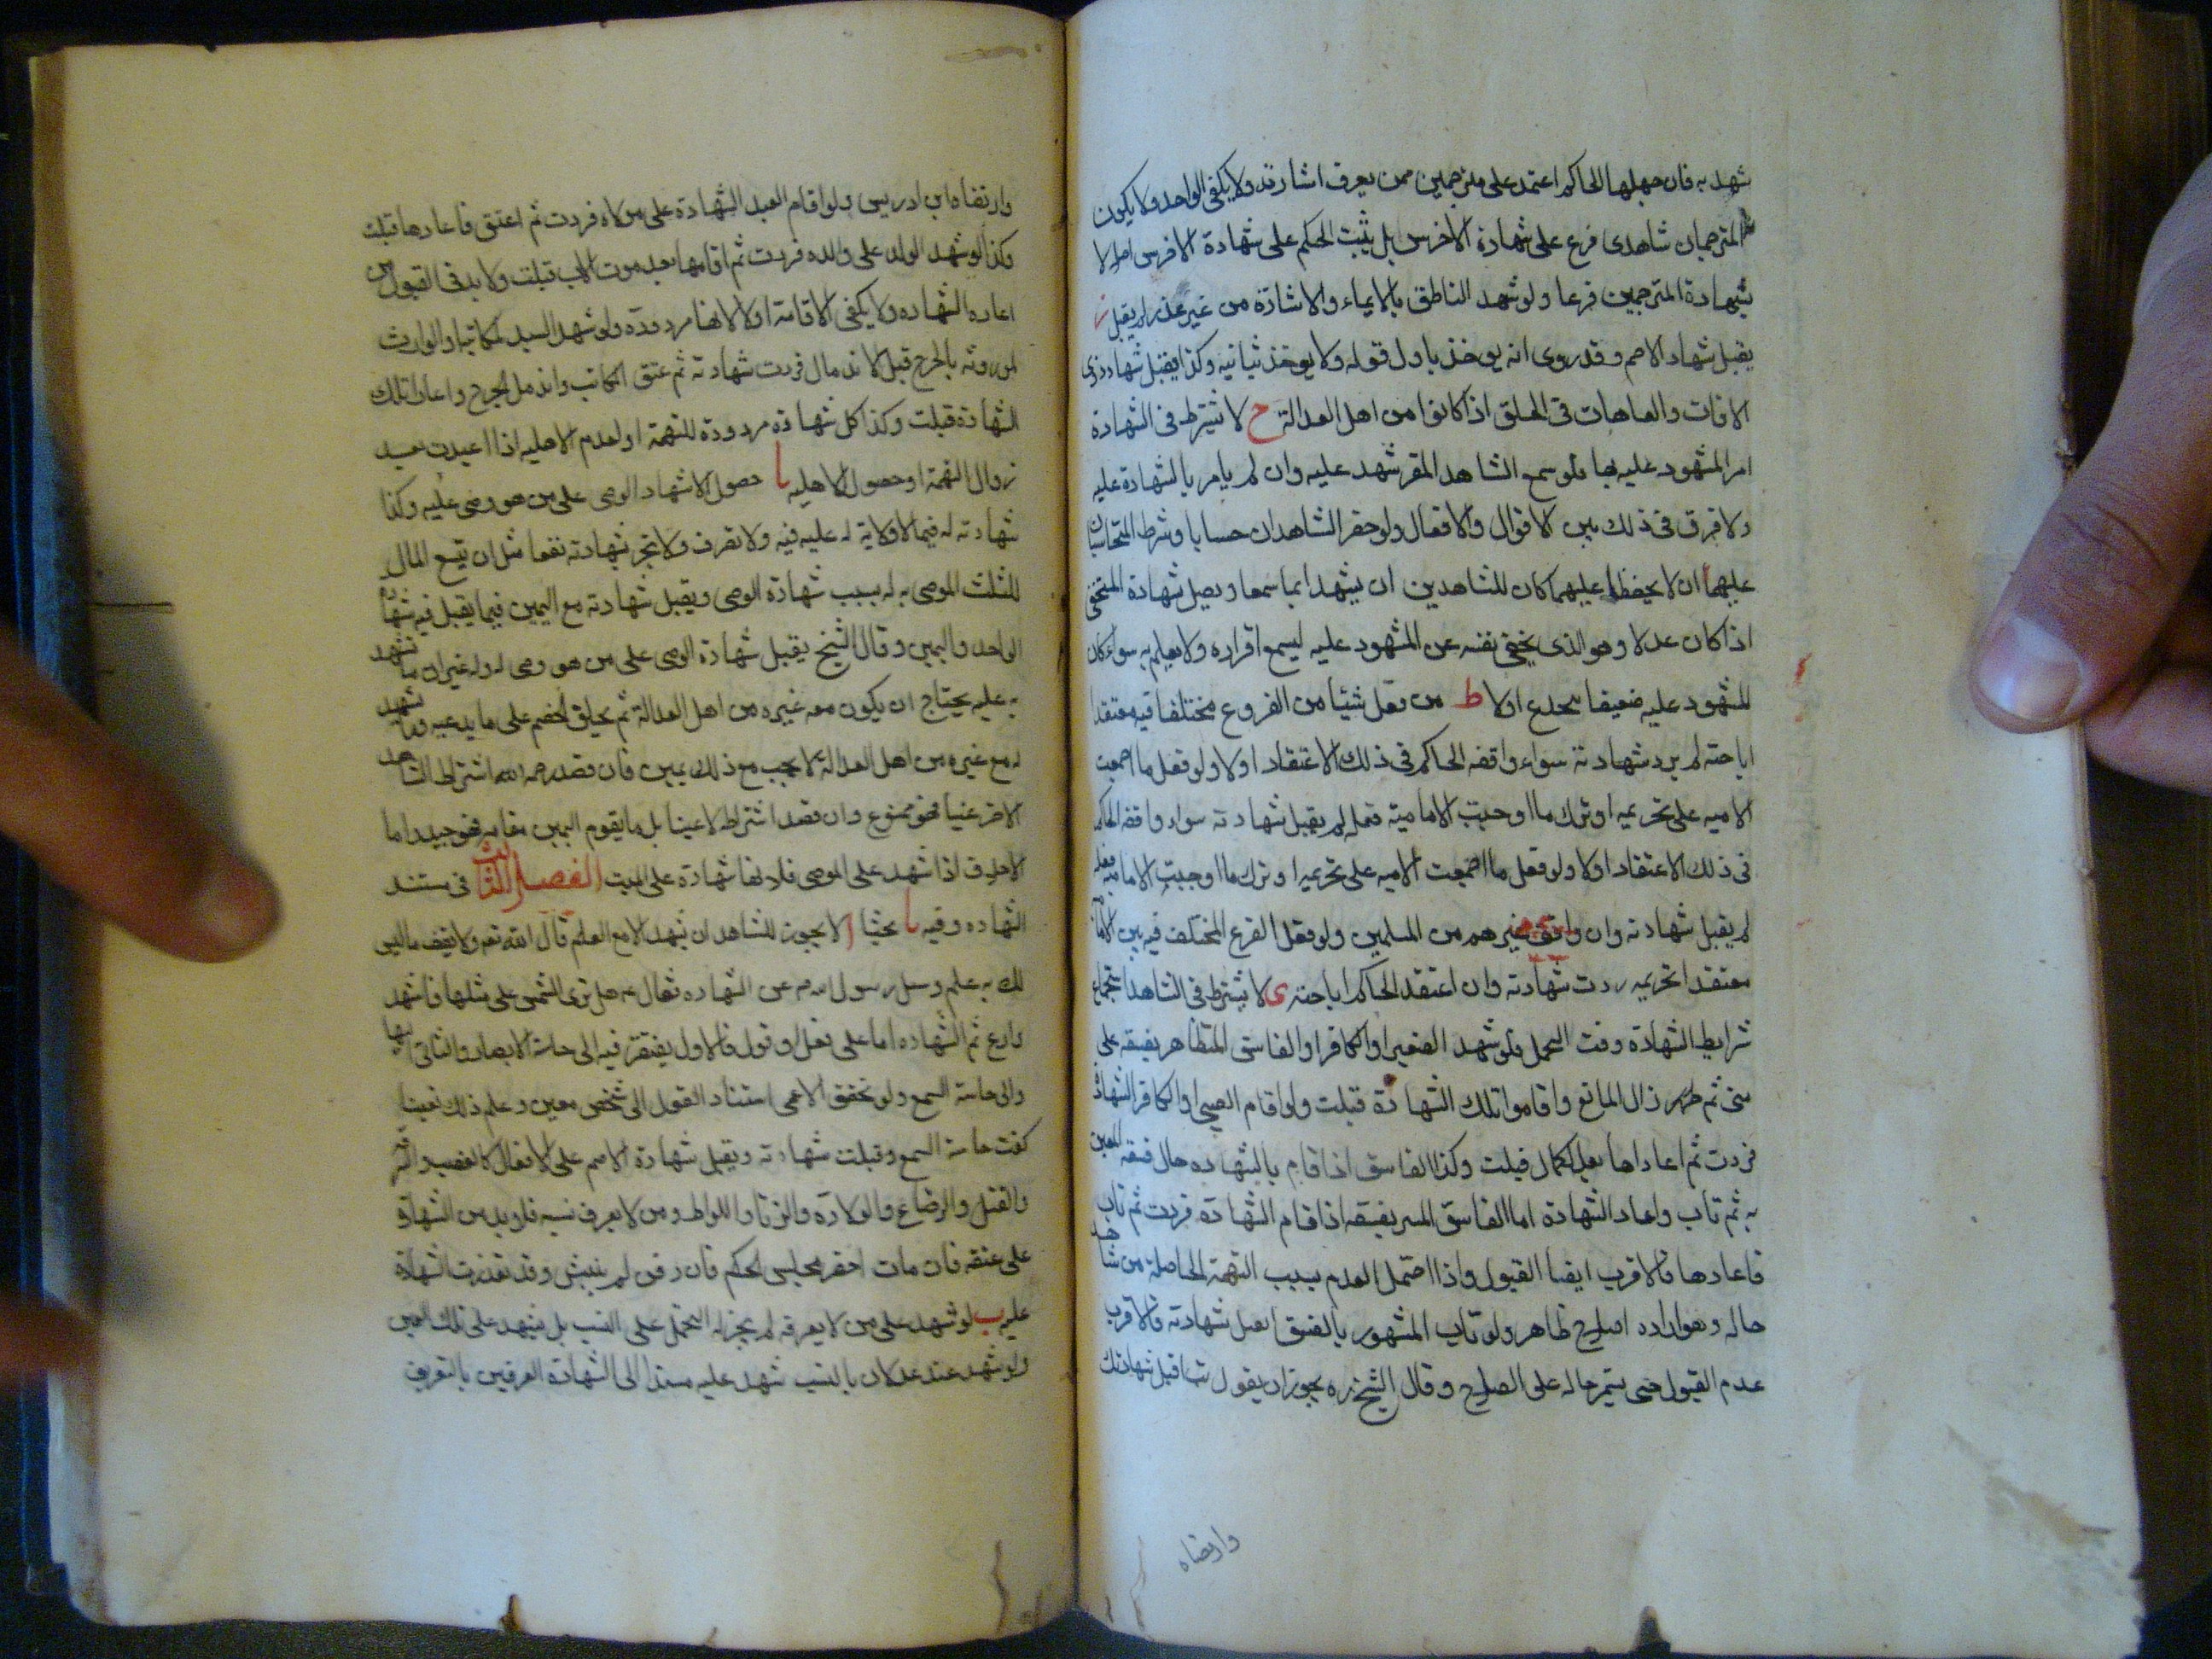 شهد به فان جهلها الحاكم اعتمد على مترجمين ممن يعرف اشارته ولا يكفى الواحد ولا يكون
المترجمان شاهدى فرع على شهادة الاخرس بل يثبت الحكم على شهادة الاخرس اصلا لا
بشهادة المترجمين فرعا ولو شهد الناطق بالايماء والاشارة من غير عذر لم يقبل ز
يقبل شهاد الاصم و قد روى انه يوخذ باول قوله ولا يوخذ بثانيه وكذا يقبل شهاد ذوى
الافات والعاهات فى الخلق اذا كانوا من اهل العدالة ح لا يشترط فى الشهادة
امر المشهود عليه بها فلو سمع الشاهد المقر شهد عليه وان لم يامر بالشهادة عليه
ولا فرق فى ذلك بين الاقوال والافعال ولو حضر الشاهدان حسابا وشرط المتحاسبان
عليهما ان لا يحفظا عليهما كان للشاهدين ان يشهدا بما سمعا و يصل شهادة المختفى
اذا كان عدلا وهو الذى يخفى نفسه عن المشهود عليه ليسمع اقراره ولا يعلم به سواء كان
المشهود عليه ضعيفا يخدع اولا ط من فعل شيئا من الفروع مختلفا فيه معتقدا
اباحته لم يرد شهادته سواء وافقه الحاكم فى ذلك الاعتقاد اولا ولو فعل ما اجمعت
الاميه على تحريمه او ترك ما اوجبت الامامية فعله لم يقبل شهادته سواء وافقه الحاكم
فى ذلك الاعتقاد اولا ولو فعل ما اجمعت الاميه على تحريمه او ترك ما اوجبت الامامية فعله
لم يقبل شهادته وان وافق غيرهم من المسلمين ولو فعل الفرع المختلف فيه بين الامامية
معتقدا تحريمه ردت شهادته وان اعتقد الحاكم اباحته ى لا يشترط فى الشاهد استجماع
شرايط الشهادة وقت التحمل فلو شهد الصغير او الكافر او الفاسق المتظاهر بفسقه على
شى ثم زال المانع واقاموا تلك الشهادة قبلت ولو اقام الصبى او الكافر الشهادة
فردت ثم اعاداها بعد الكمال قبلت وكذا الفاسق اذا قام بالشهاده حال فسقه المعلن
به ثم تاب واعاد الشهادة اما الفاسق المسر بفسقه اذا قام الشهادة فردت ثم تاب
فاعادها فالاقرب ايضا القبول واذا احتمل العدم بسبب التهمة الحاصلة من شاهد
حاله وهو اراده اصلاح ظاهره ولو تاب المشهور بالفسق ليقبل شهادته فالاقرب
عدم القبول حتى يستمر حاله على الصلاح وقال الشيخ ره يجوز ان يقول تب اقبل شهادتك
وارتضاه
وارتضاه ابن ادريس ولو اقام العبد الشهادة على مولاه فردت ثم اعتق فاعادها قبلت
وكذا لو شهد الولد على والده فردت ثم اقامها بعد موت الاب قبلت ولا بد فى القبول من
اعاده الشهاده ولا يكفى الاقامة اولا لانها مردودة ولو شهد السيد لمكاتبه او الوارث
لمورثه بالجرح قبل الاندمال فردت شهادته ثم عتق المكاتب واندمل الجرح واعاد تلك
الشهادة قبلت وكذا كل شهادة مردودة للتهمة او لعدم الاهليه اذا اعيدت بعد
زوال التهمة او حصول الاهليه يا حصول الاشهاد الوصى على من هو وصى عليه وكذا
شهادته له فيما لا ولاية له عليه فيه ولا تصرف ولا تجر شهادته نفعا مثل ان يتسع المال
للثلث الموصى به له بسبب شهادة الوصى ويقبل شهادته مع اليمين فيما يقبل فيه شهادة
الواحد واليمين وقال الشيخ يقبل شهادة الوصى على من هو وصى له وله غير ان ما يشهد
به عليه يحتاج ان يكون معه غيره من اهل العدالة ثم يحلف الخصم على ما يدعيه وما يشهد
له مع غيره من اهل العدالة لا يجب مع ذلك يمين فان قصد رحمه الله اشتراط الشاهد
الاخر عينا فهو ممنوع وان قصد اشتراطه لا عينا بل ما يقوم اليمين مقامه فهو جيد اما
الاحلاف اذا شهد على الموصى فلانها شهادة على الميت الفصل الثالث فى مستند
الشهاده وفيه يا بحثا ا لا يجوز للشاهد ان يشهد الا مع العلم قال الله تعالى ولا تقف ما ليس
لك به علم وسئل رسول الله ص عن الشهاده فقال ع هل ترى الشمس على مثلها فاشهد
او دع ثم الشهاده اما على فعل او قول فالاول يفتقر فيه الى حاسة الابصار والثانى اليها
والى حاسة السمع ولو تحقق الاعمى استناد القول الى شخص معين وعلم ذلك يقينا
كفت حاسة السمع وقبلت شهادته ويقبل شهادة الاصم على الافعال كالغصب والسرقة
والقتل والرضاع والولادة والزنا واللواط ومن لا يعرف نسبه فلا بد من الشهادة
على عينه فان مات احضر مجلس الحكم فان دفن لم ينبش وقد تعذرت الشهادة
عليه ب لو شهد على من لا يعرفه لم يجز له التحمل على النسب بل يشهد على تلك العين
ولو شهد عنده عدلان بالنسب شهد عليه مستندا الى الشهادة المعرفين بالتعريف